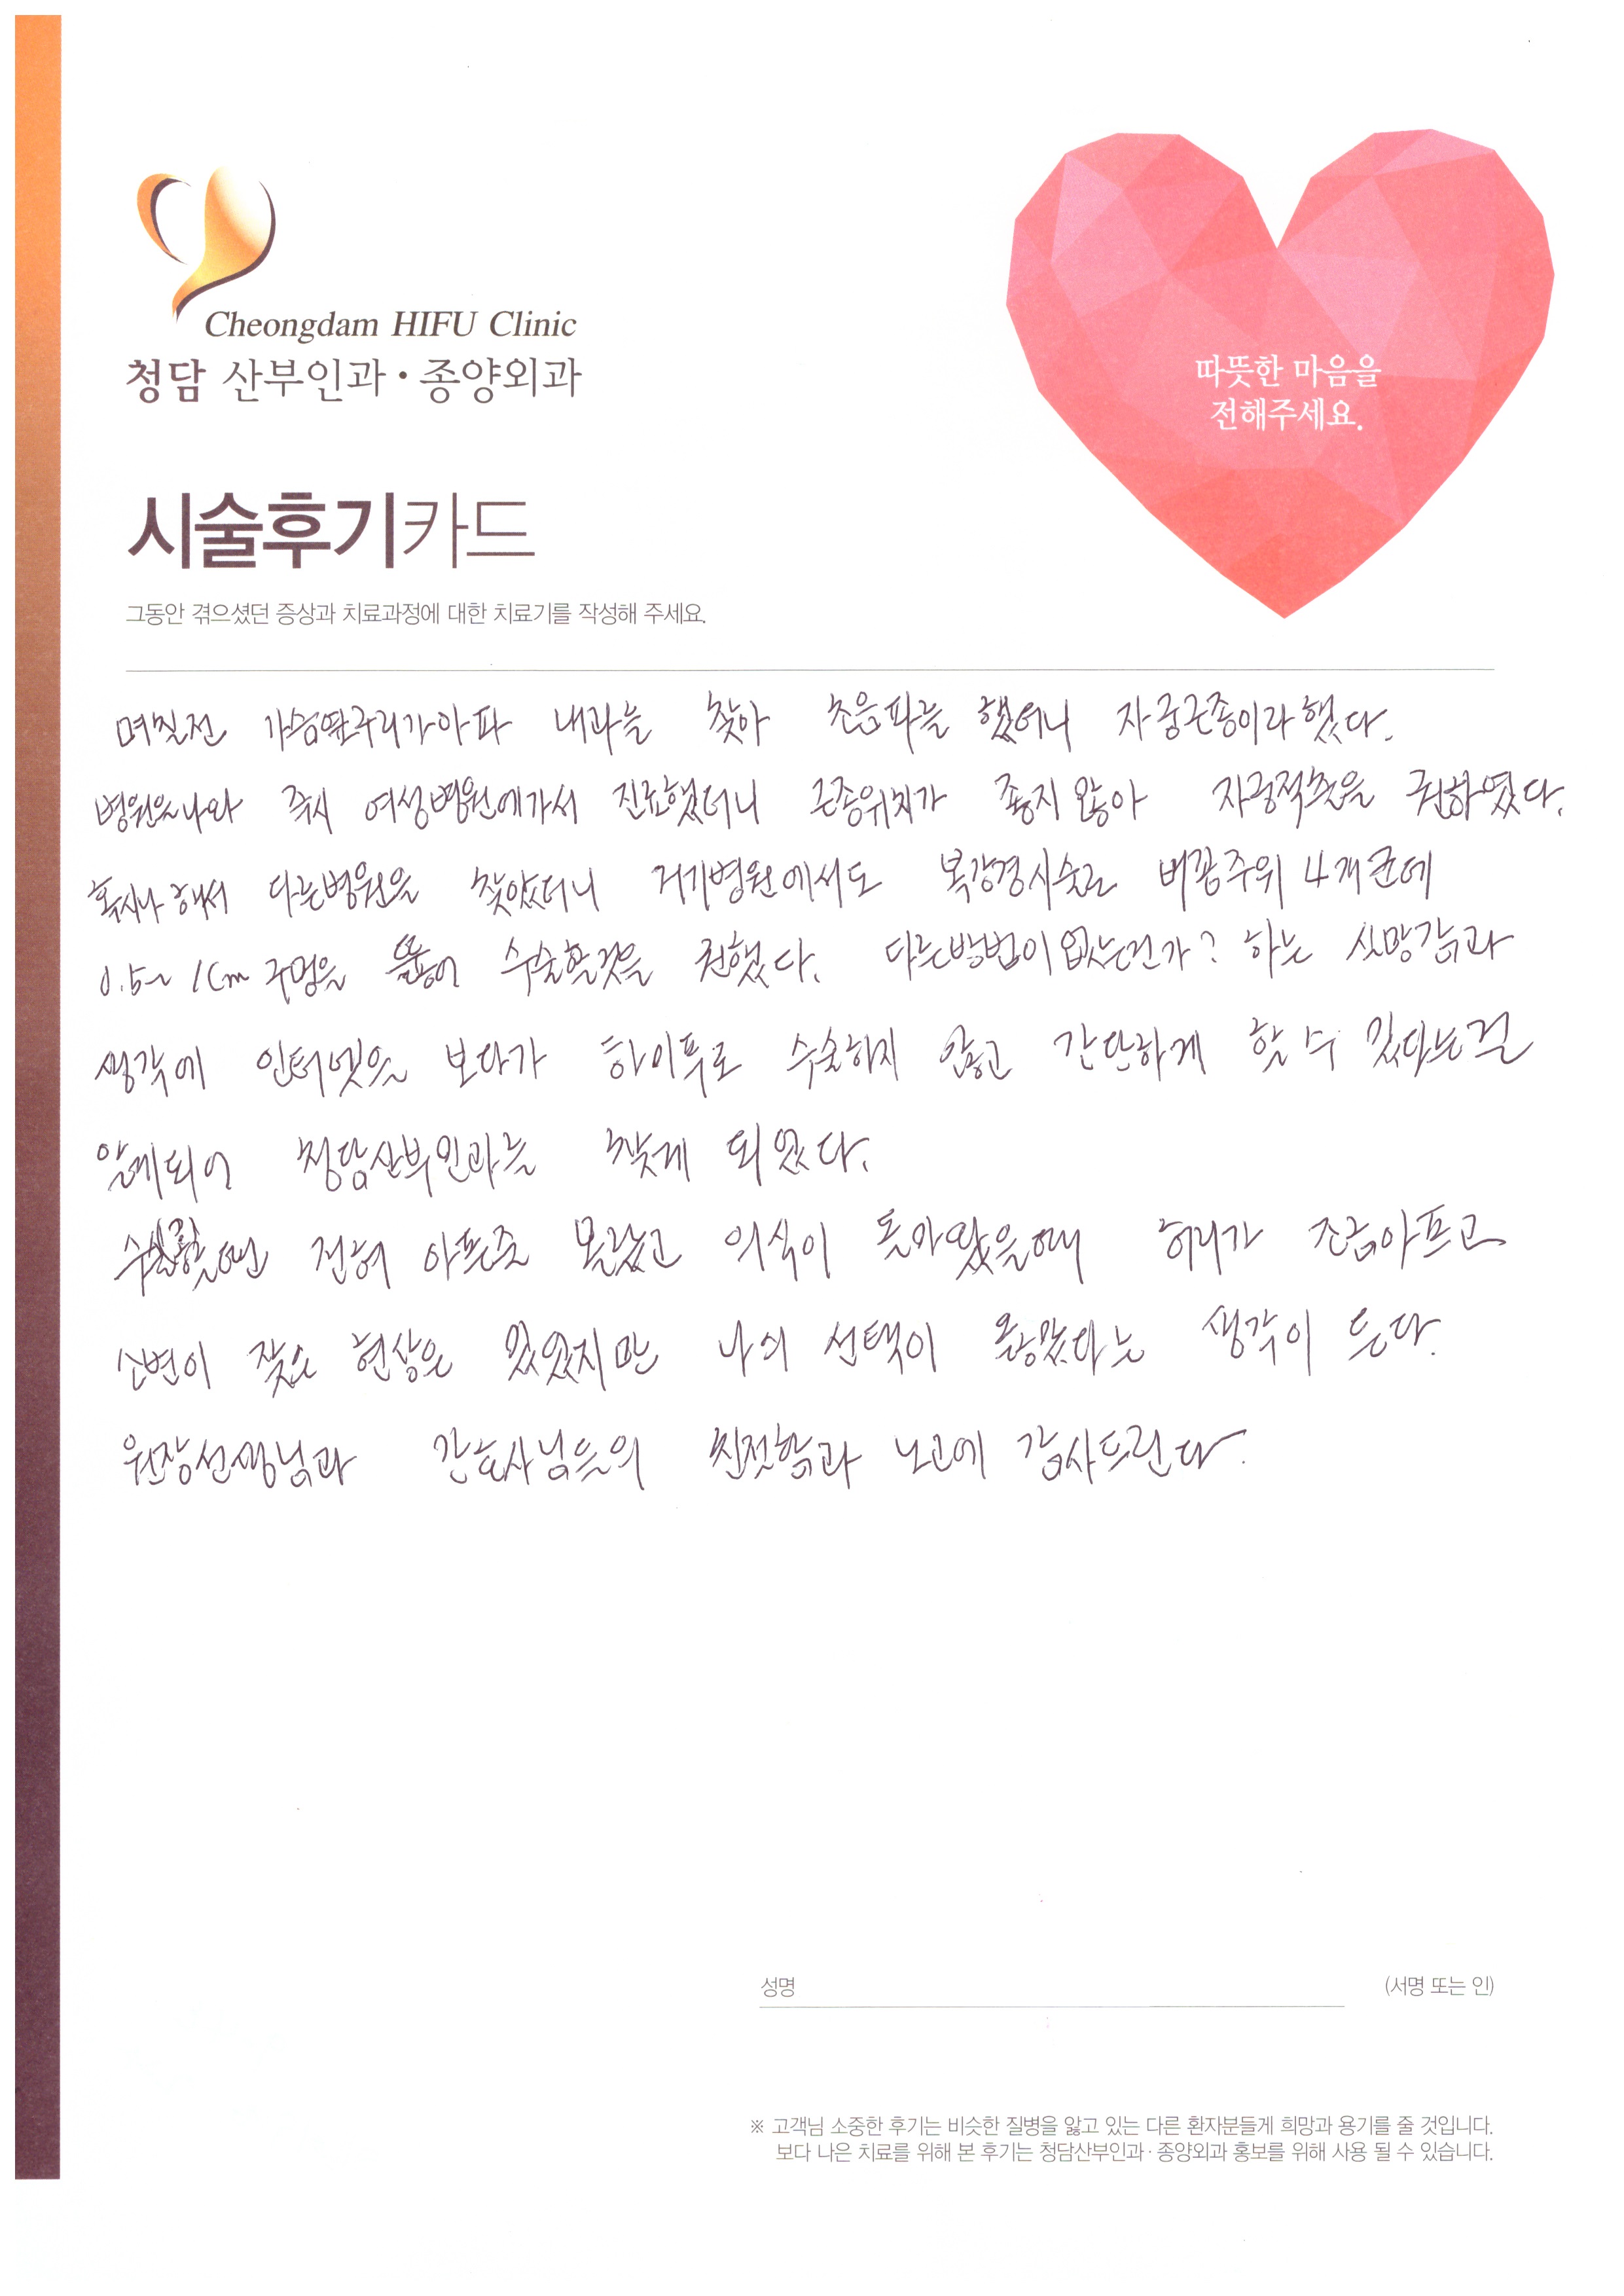 Cheongdam HIFU Clinic
청담 산부인과·종양외과
따뜻한 마음을
전해주세요.
시술후기카드
그동안 겪으셨던 증상과 치료과정에 대한 치료기를 작성해 주세요.
며칠전 가슴옆구리가아파 내과를 찾아 초음파를 했더니 자궁근종이라했다.
병원을나와 즉시 여성병원에가서 진료했더니 근종위치가 좋지않아 자궁적출을 권하였다.
혹시나해서 다른병원을 찾았더니 거기병원에서도 복강경시술로 배꼽주위 4개군데
0.5~1cm 구멍을 뚫어 수술할것을 권했다. 다른방법이없는건가? 하는 실망감과
생각에 인터넷을 보다가 하이푸로 수술하지 않고 간단하게 할수 있다는걸
알게되어 청담산부인과를 찾게 되었다.
전혀 아픈줄 몰랐고 의식이 돌아왔을때 허리가 조금아프고
소변이 잦은 현상은 있었지만 나의 선택이 옳았다는 생각이 든다.
원장선생님과 간호사님들의 친절함과 노고에 감사드린다.
성명
(서명 또는 인)
※ 고객님 소중한 후기는 비슷한 질병을 앓고 있는 다른 환자분들게 희망과 용기를 줄 것입니다.
보다 나은 치료를 위해 본 후기는 청담산부인과·종양외과 홍보를 위해 사용 될 수 있습니다.